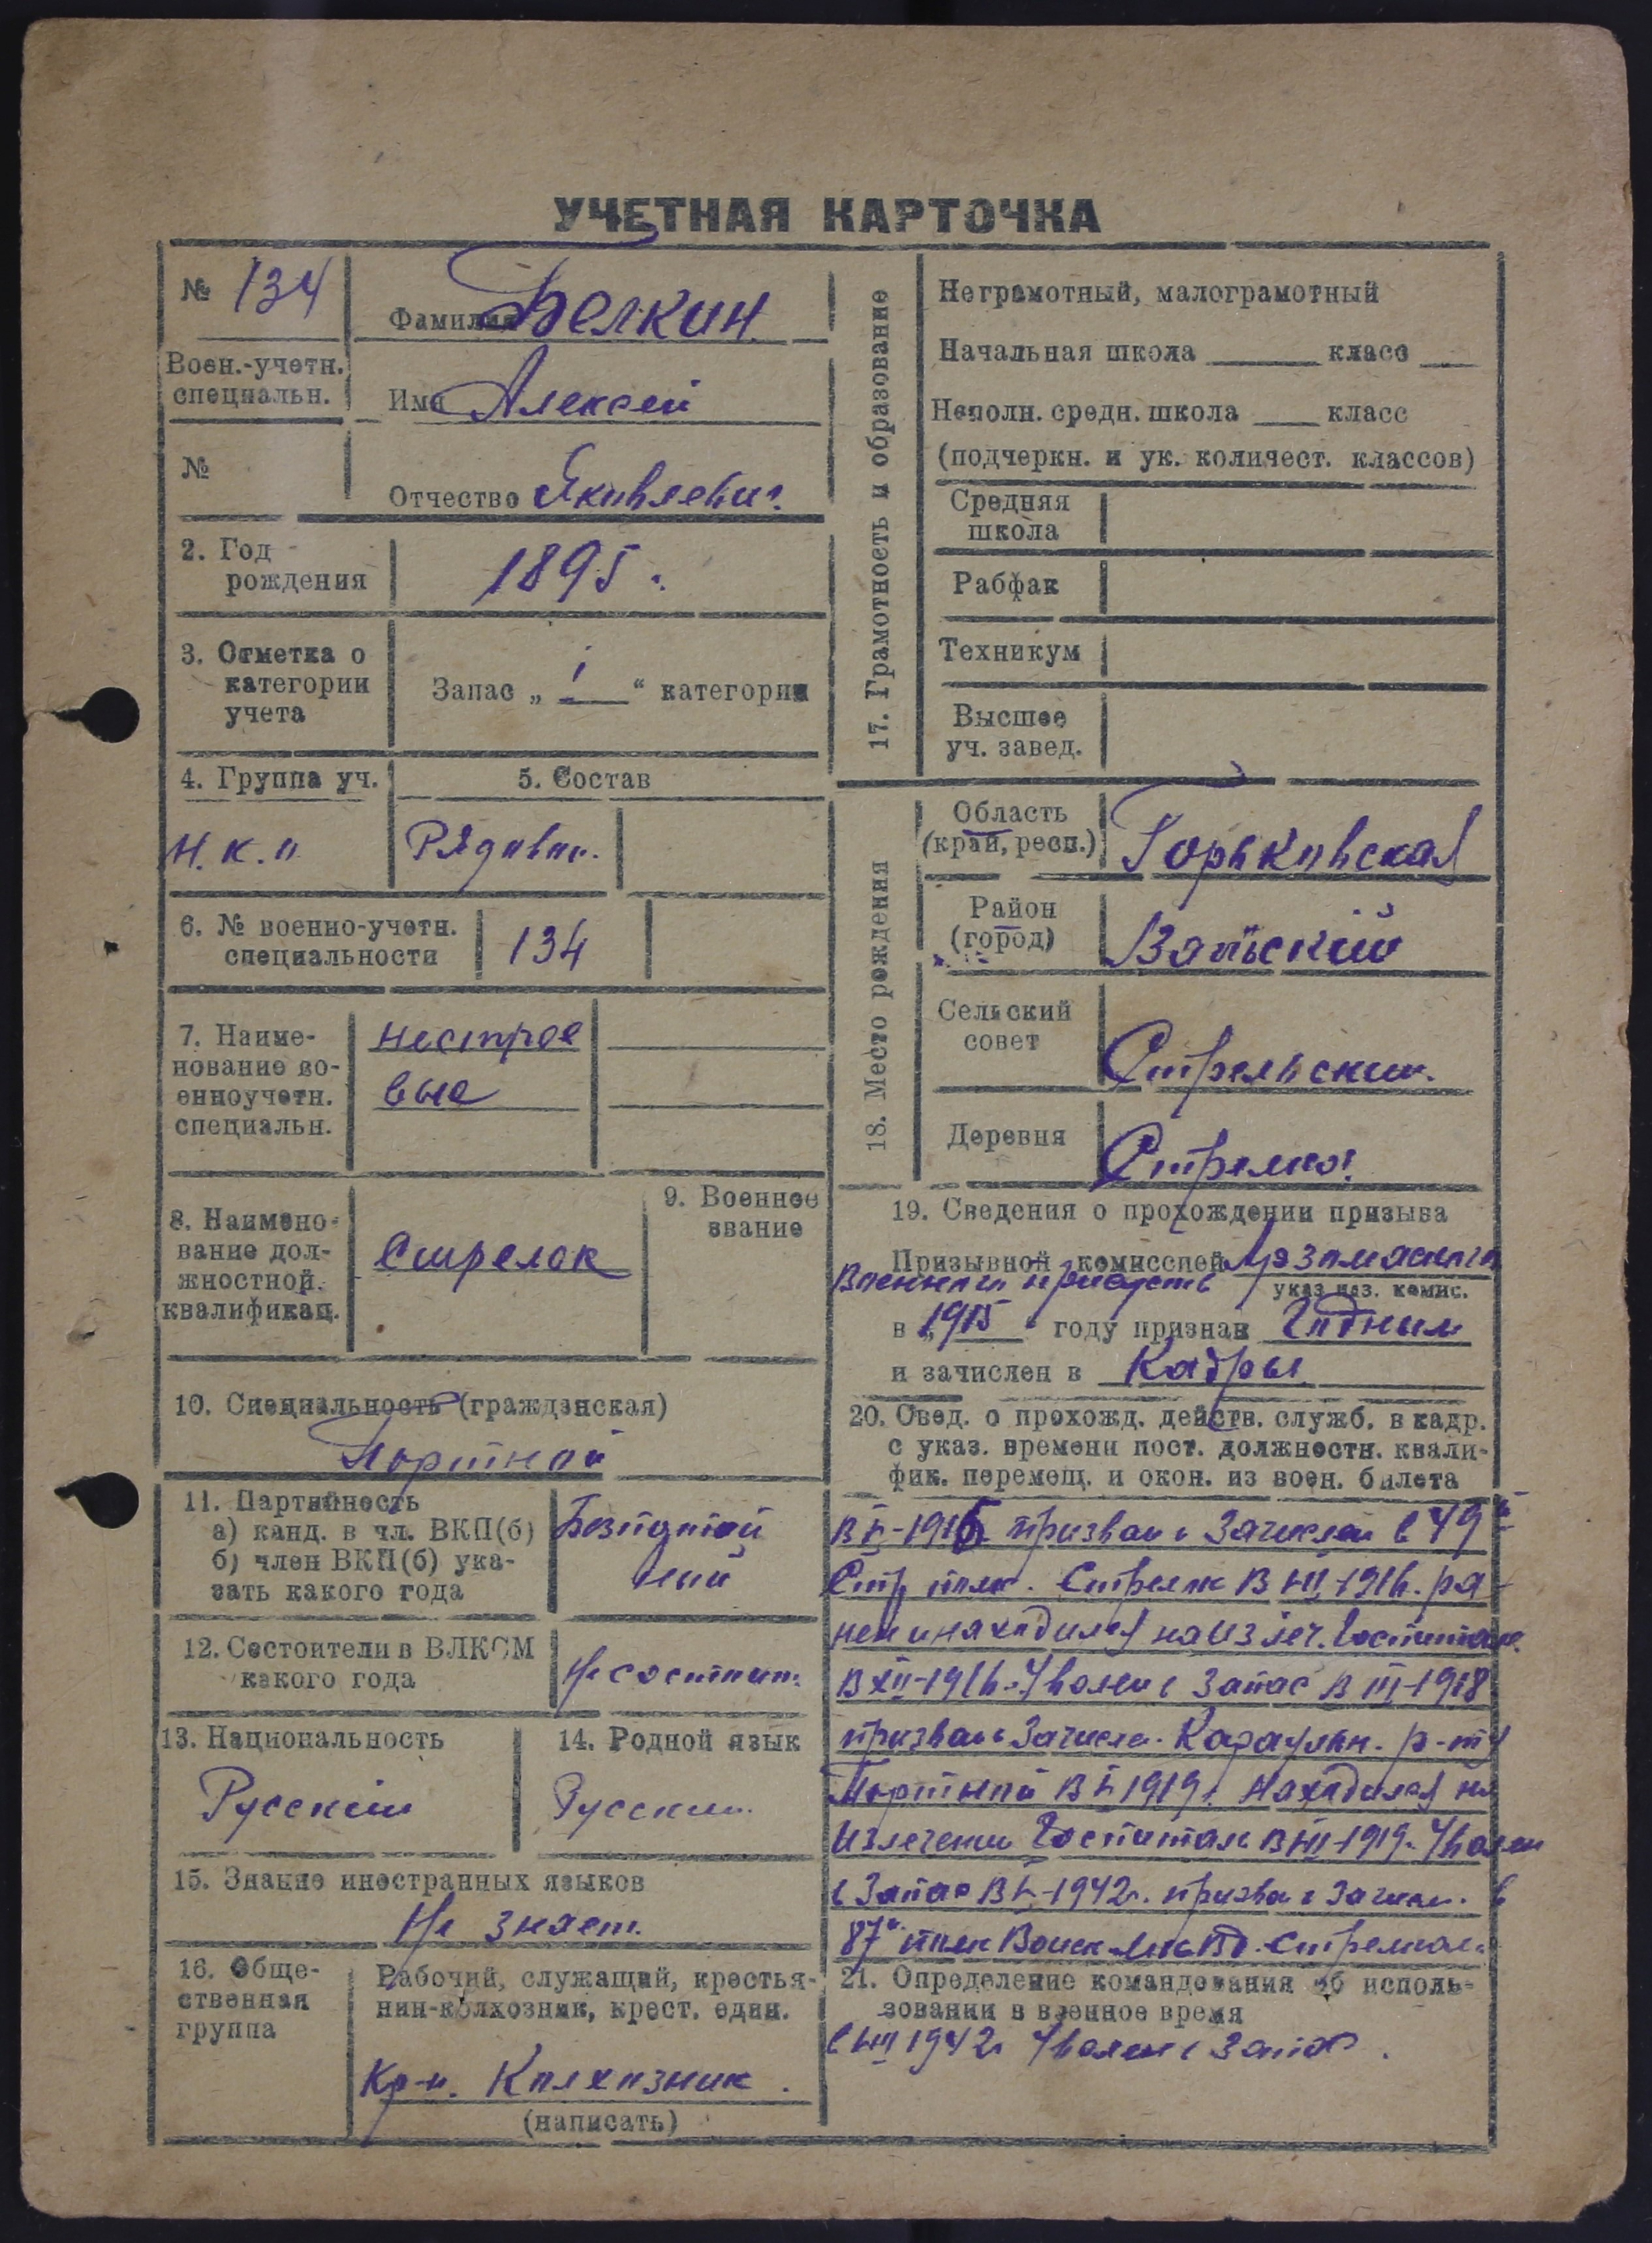 УЧЕТНАЯ КАРТОЧКА
№ 134
Фамилия Белкин
Воен.-учетн.
специальн.
Имя Алексей
№
Отчество Яковлевич
2. Год
рождения
1895 г.
3. Отметка о
категории
учета
Запас „ 1 “ категории
4. Группа уч.
5. Состав
Н.к.о
Рядовой
6. № военно-учетн.
специальности
134
7. Наиме-
нование во-
енноучетн.
специальн.
нестрое
вые
8. Наимено-
вание дол-
жностной.
квалификац.
Стрелок
9. Военное
звание
10. Специальность (гражданская)
Портной
11. Партийность
а) канд. в чл. ВКП(б)
б) член ВКП(б) ука-
зать какого года
12. Состоители в ВЛКСМ
какого года
Не состоит.
13. Национальность
Русский
14. Родной язык
Русский
15. Знание иностранных языков
Не знает.
16. Обще-
ственная
группа
Рабочий, служащий, крестья-
нин-колхозник, крест. един.
Кр-н. Колхозник.
(написать)
17. Грамотность и образование
Неграмотный, малограмотный
Начальная школа класс
Неполн. средн. школа класс
(подчеркн. и ук. количест. классов)
Средняя
школа
Рабфак
Техникум
Высшее
уч. завед.
18. Место рождения
Область
(край, респ.)
Горьковская
Район
(город)
Сельский
совет
Стрельский
Деревня
Стрелка
19. Сведения о прохождении призыва
Призывной комиссией
указ. наз. комис.
в „ 1915 “ году признан Годным
и зачислен в Кадры
20. Свед. о прохожд. действ. служб. в кадр.
с указ. времени пост. должностн. квали-
фик. перемещ. и окон. из воен. билета
призван и зачислен в 49й
Стр полк. Стрелк В 1916. ра-
нен и находился на излеч. Госпитале
В XII-1916 Уволен в Запас В III-1918
призван и Зачисл. Караульн. р-ту
Портной 1919 г. Находился на
Излечении Госпитале 1919. Уволен
в Запас 1942 г. призва и Зачисл. в
87й полк Стрелком
21. Определение командования об исполь-
зовании в военное время
1942 г. Уволен в Запас.